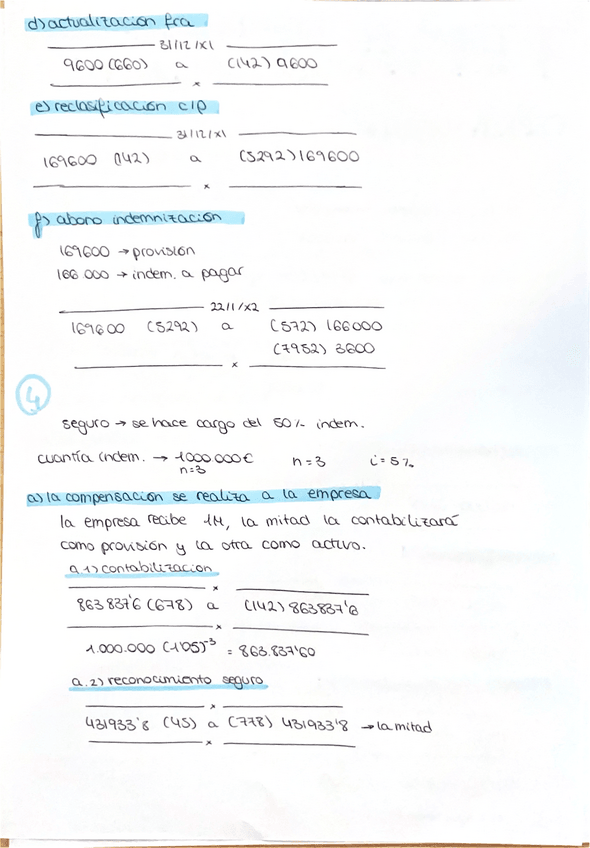 d) actualización fra.
31/12/x1
9600 (660) a (142) 9600
x
e) reclasificación c/p
31/12/x1
169600 (142) a (5292) 169600
x
f) abono indemnización
169600 → provisión
166.000 → indem. a pagar
22/1/x2
169600 (5292) a (572) 166000
(7952) 3600
x
4
seguro → se hace cargo del 50% indem.
cuantía indem. → 1000.000€ n=3 i=5%
n=3
a) la compensación se realiza a la empresa
la empresa recibe 1M, la mitad la contabilizará
como provisión y la otra como activo.
a.1) contabilización
x
863.837'6 (678) a (142) 863837'6
x
1.000.000 (1'05)⁻³ = 863.837'60
a.2) reconocimiento seguro
x
431933'8 (45) a (778) 431933'8 → la mitad
x